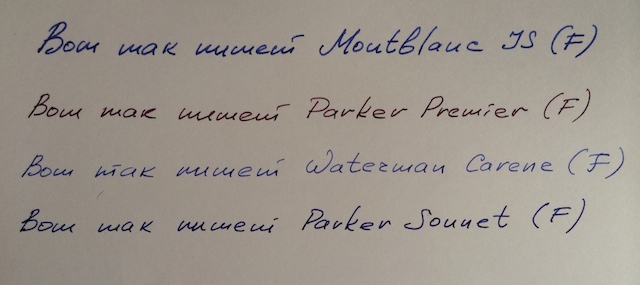 Вот так пишет Montblanc JS (F)
Вот так пишет Parker Premier (F)
Вот так пишет Waterman Carene (F)
Вот так пишет Parker Sonnet (F)